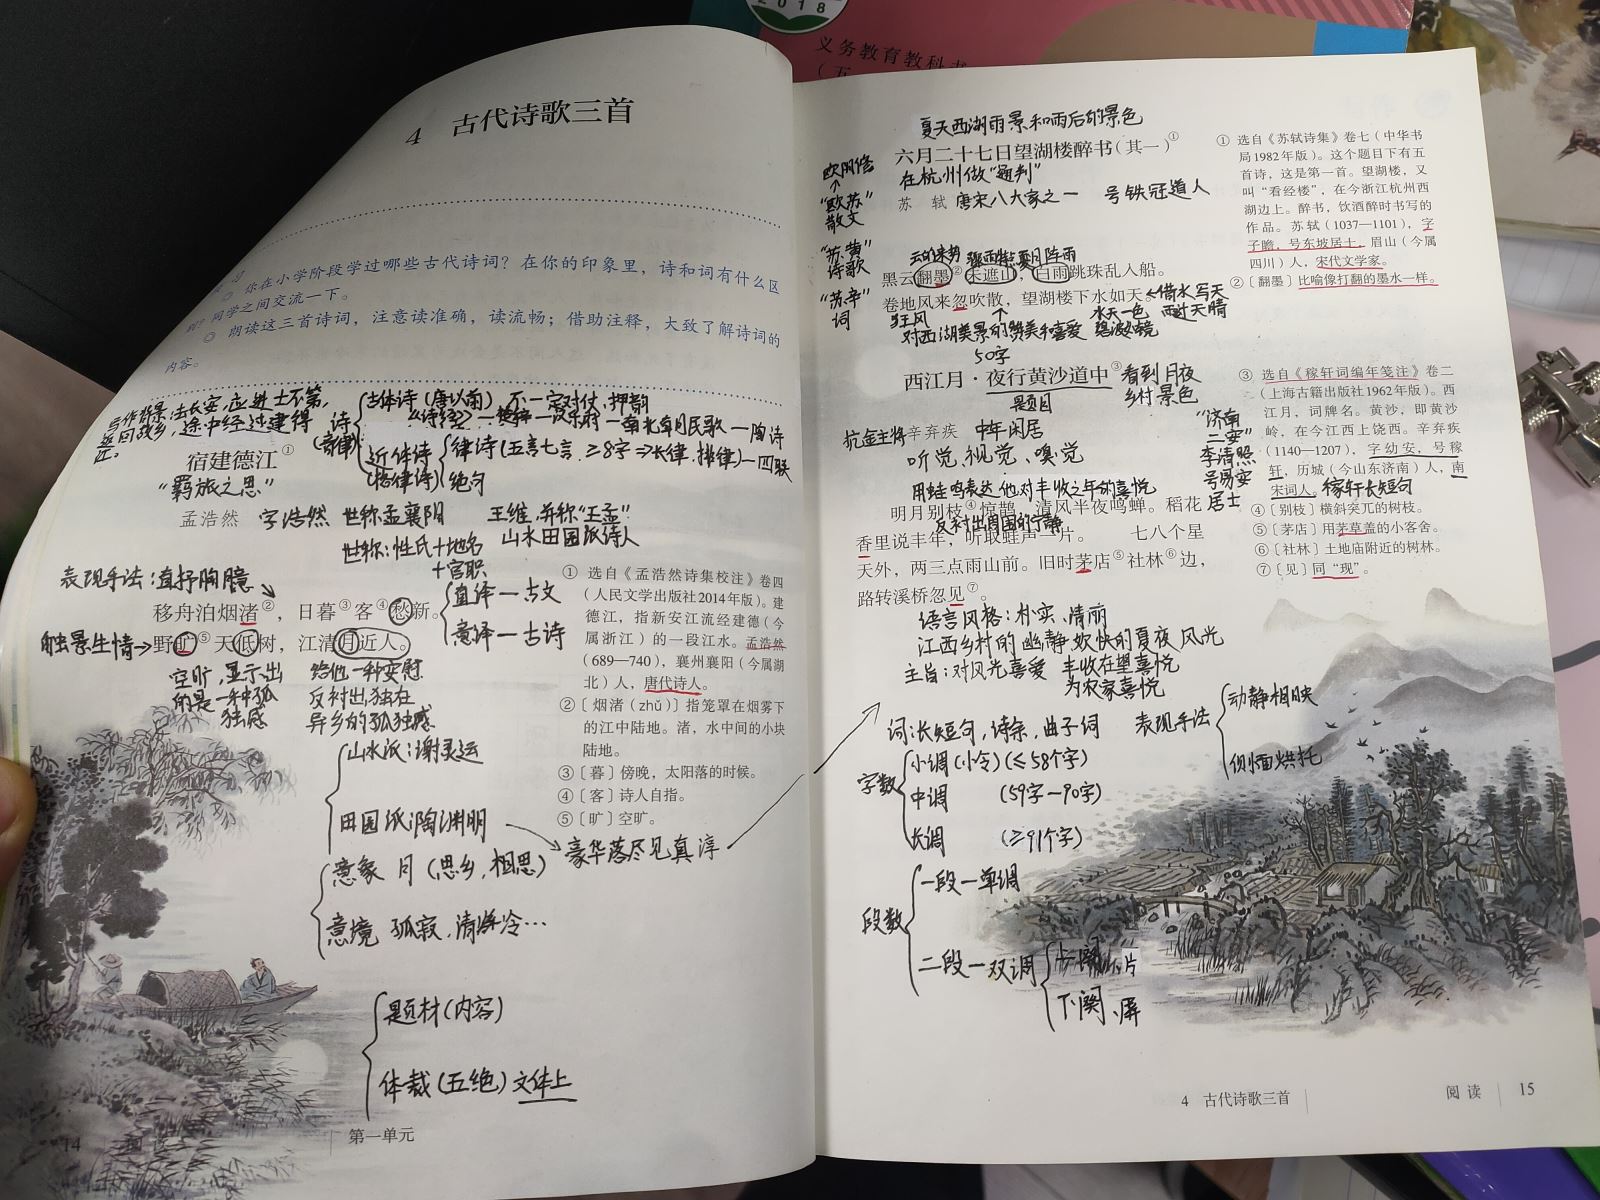 2018
义务教育教科书
4 古代诗歌三首
◎ 你在小学阶段学过哪些古代诗词？在你的印象里，诗和词有什么区
别？同学之间交流一下。
◎ 朗读这三首诗词，注意读准确，读流畅；借助注释，大致了解诗词的
内容。
写作背景：去长安，应进士不第，
返回故乡，途中经过建德
诗
古体诗（唐以前）、不一定对仗、押韵
《诗经》—楚辞—汉乐府—南北朝民歌—陶诗
近体诗
（格律诗）
律诗（五言七言，≥8字⇒长律，排律）—四联
绝句
宿建德江①
“羁旅之思”
孟浩然 字浩然 世称孟襄阳 王维，并称“王孟”
世称：性氏+地名 山水田园派诗人
+官职
直译—古文
意译—古诗
表现手法：直抒胸臆
移舟泊烟渚②，日暮③客④愁新。
触景生情→野旷⑤天低树，江清月近人。
空旷，显示出
的是一种孤
独感
给他一种安慰
反衬出独在
异乡的孤独感
① 选自《孟浩然诗集校注》卷四
（人民文学出版社2014年版）。建
德江，指新安江流经建德（今
属浙江）的一段江水。孟浩然
（689—740），襄州襄阳（今属湖
北）人，唐代诗人。
②〔烟渚（zhǔ）〕指笼罩在烟雾下
的江中陆地。渚，水中间的小块
陆地。
③〔暮〕傍晚，太阳落的时候。
④〔客〕诗人自指。
⑤〔旷〕空旷。
山水派：谢灵运
田园派：陶渊明
豪华落尽见真淳
意象 月（思乡，相思）
意境 孤寂，清冷…
题材（内容）
体裁（五绝）文体上
14 阅读
第一单元
夏天西湖雨景和雨后的景色
六月二十七日望湖楼醉书（其一）①
在杭州做“通判”
苏 轼 唐宋八大家之一 号铁冠道人
欧阳修
“欧苏”
散文
“苏黄”
诗歌
“苏辛”
词
云的来势 夏日阵雨
黑云翻墨②未遮山，白雨跳珠乱入船。
卷地风来忽吹散，望湖楼下水如天。←借水写天
狂风 水天一色 雨过天晴
对西湖美景的赞美和喜爱 碧波如镜
50字
西江月·夜行黄沙道中③ 看到月夜
题目 乡村景色
抗金主将 辛弃疾 中年闲居
听觉、视觉、嗅觉
用蛙鸣表达他对丰收之年的喜悦
明月别枝④惊鹊，清风半夜鸣蝉。稻花
反衬出周围的宁静
香里说丰年，听取蛙声一片。 七八个星
天外，两三点雨山前。旧时茅店⑤社林⑥边，
路转溪桥忽见⑦。
“济南
二安”
李清照
号易安
居士
语言风格：朴实、清丽
江西乡村的幽静欢快的夏夜风光
主旨：对风光喜爱 丰收在望喜悦
为农家喜悦
词：长短句，诗余，曲子词
表现手法
动静相映
侧面烘托
字数
小调（小令）（≤58个字）
中调 （59字—90字）
长调 （≥91个字）
段数
一段—单调
二段—双调
下阕、
① 选自《苏轼诗集》卷七（中华书
局1982年版）。这个题目下有五
首诗，这是第一首。望湖楼，又
叫“看经楼”，在今浙江杭州西
湖边上。醉书，饮酒醉时书写的
作品。苏轼（1037—1101），字
子瞻，号东坡居士，眉山（今属
四川）人，宋代文学家。
②〔翻墨〕比喻像打翻的墨水一样。
③ 选自《稼轩词编年笺注》卷二
（上海古籍出版社1962年版）。西
江月，词牌名。黄沙，即黄沙
岭，在今江西上饶西。辛弃疾
（1140—1207），字幼安，号稼
轩，历城（今山东济南）人，南
宋词人。稼轩长短句
④〔别枝〕横斜突兀的树枝。
⑤〔茅店〕用茅草盖的小客舍。
⑥〔社林〕土地庙附近的树林。
⑦〔见〕同“现”。
4 古代诗歌三首
阅读 15